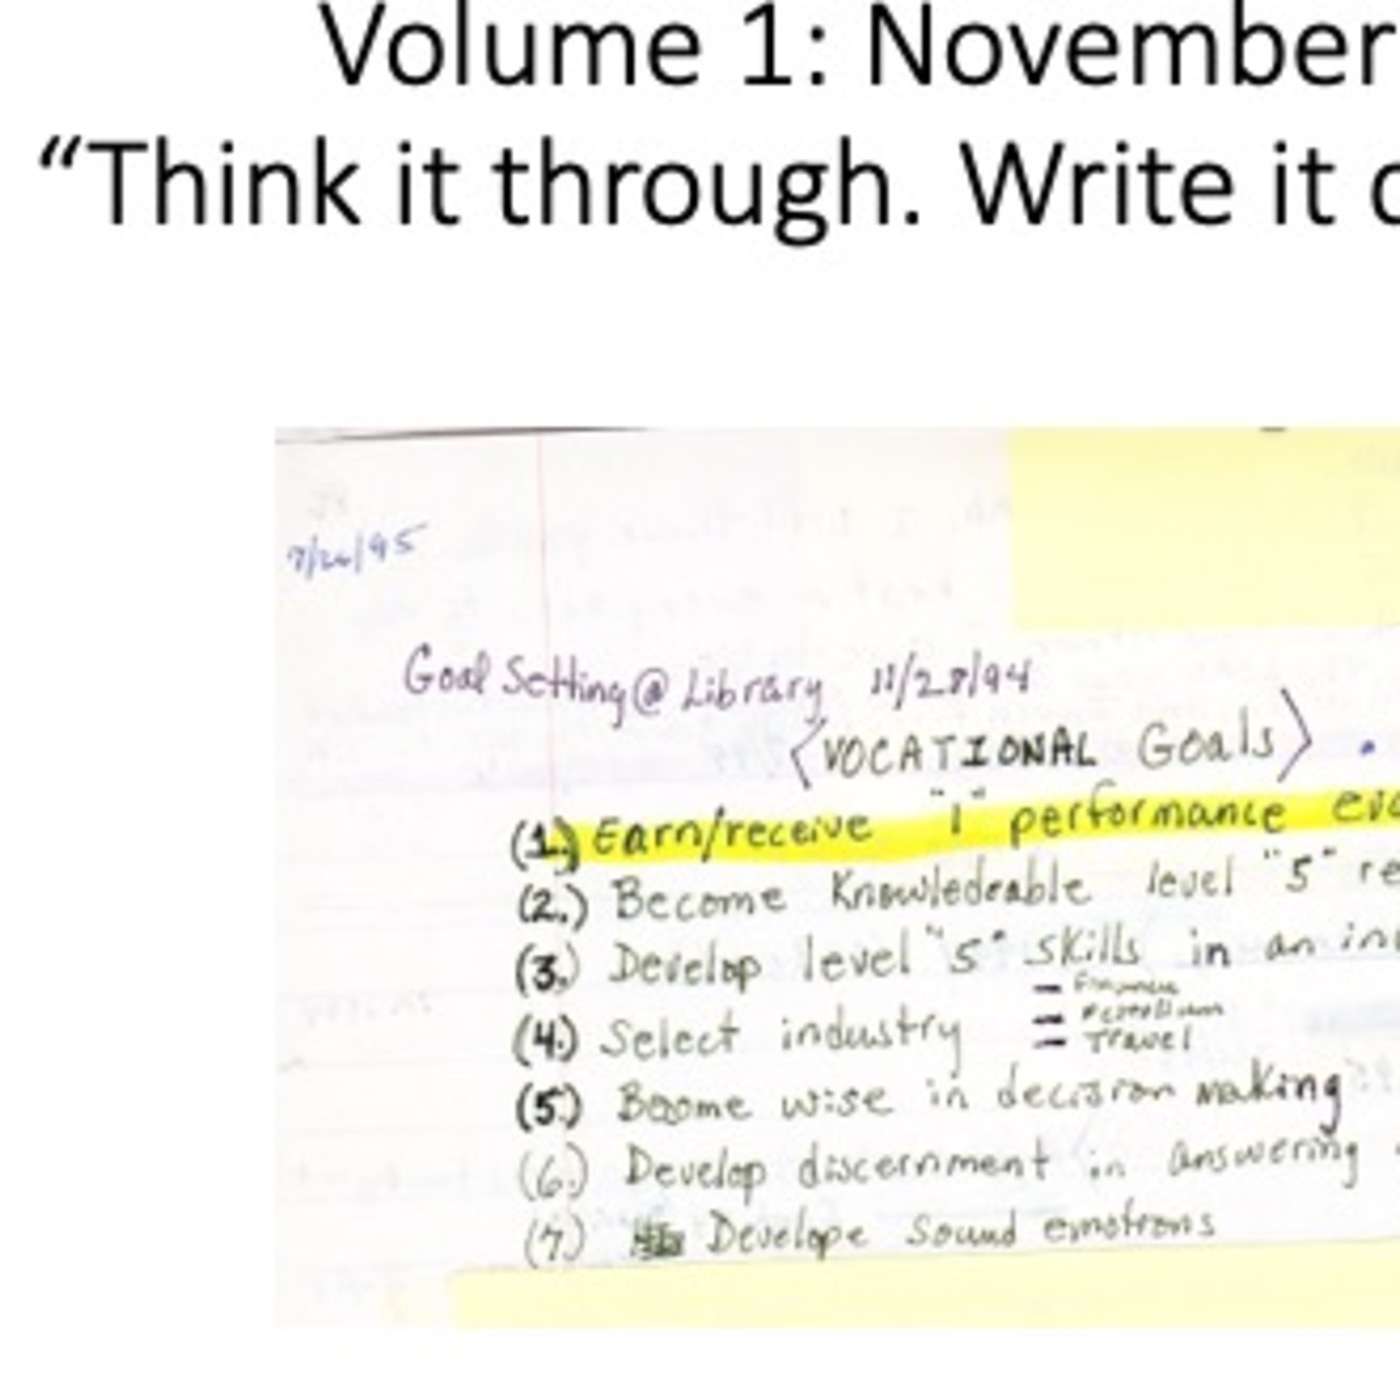 Volume 1: November
“Think it through. Write it
7/26/95
Goal Setting @ Library 11/28/94
<VOCATIONAL Goals> .
(1.) Earn/receive "1" performance
(2.) Become Knowledeable level "5"
(3.) Develop level "5" skills in an
(4.) Select industry
- Finance
- Petrolium
- Travel
(5.) Become wise in decision making
(6.) Develop discernment in answering
(7.) Develope sound emotions